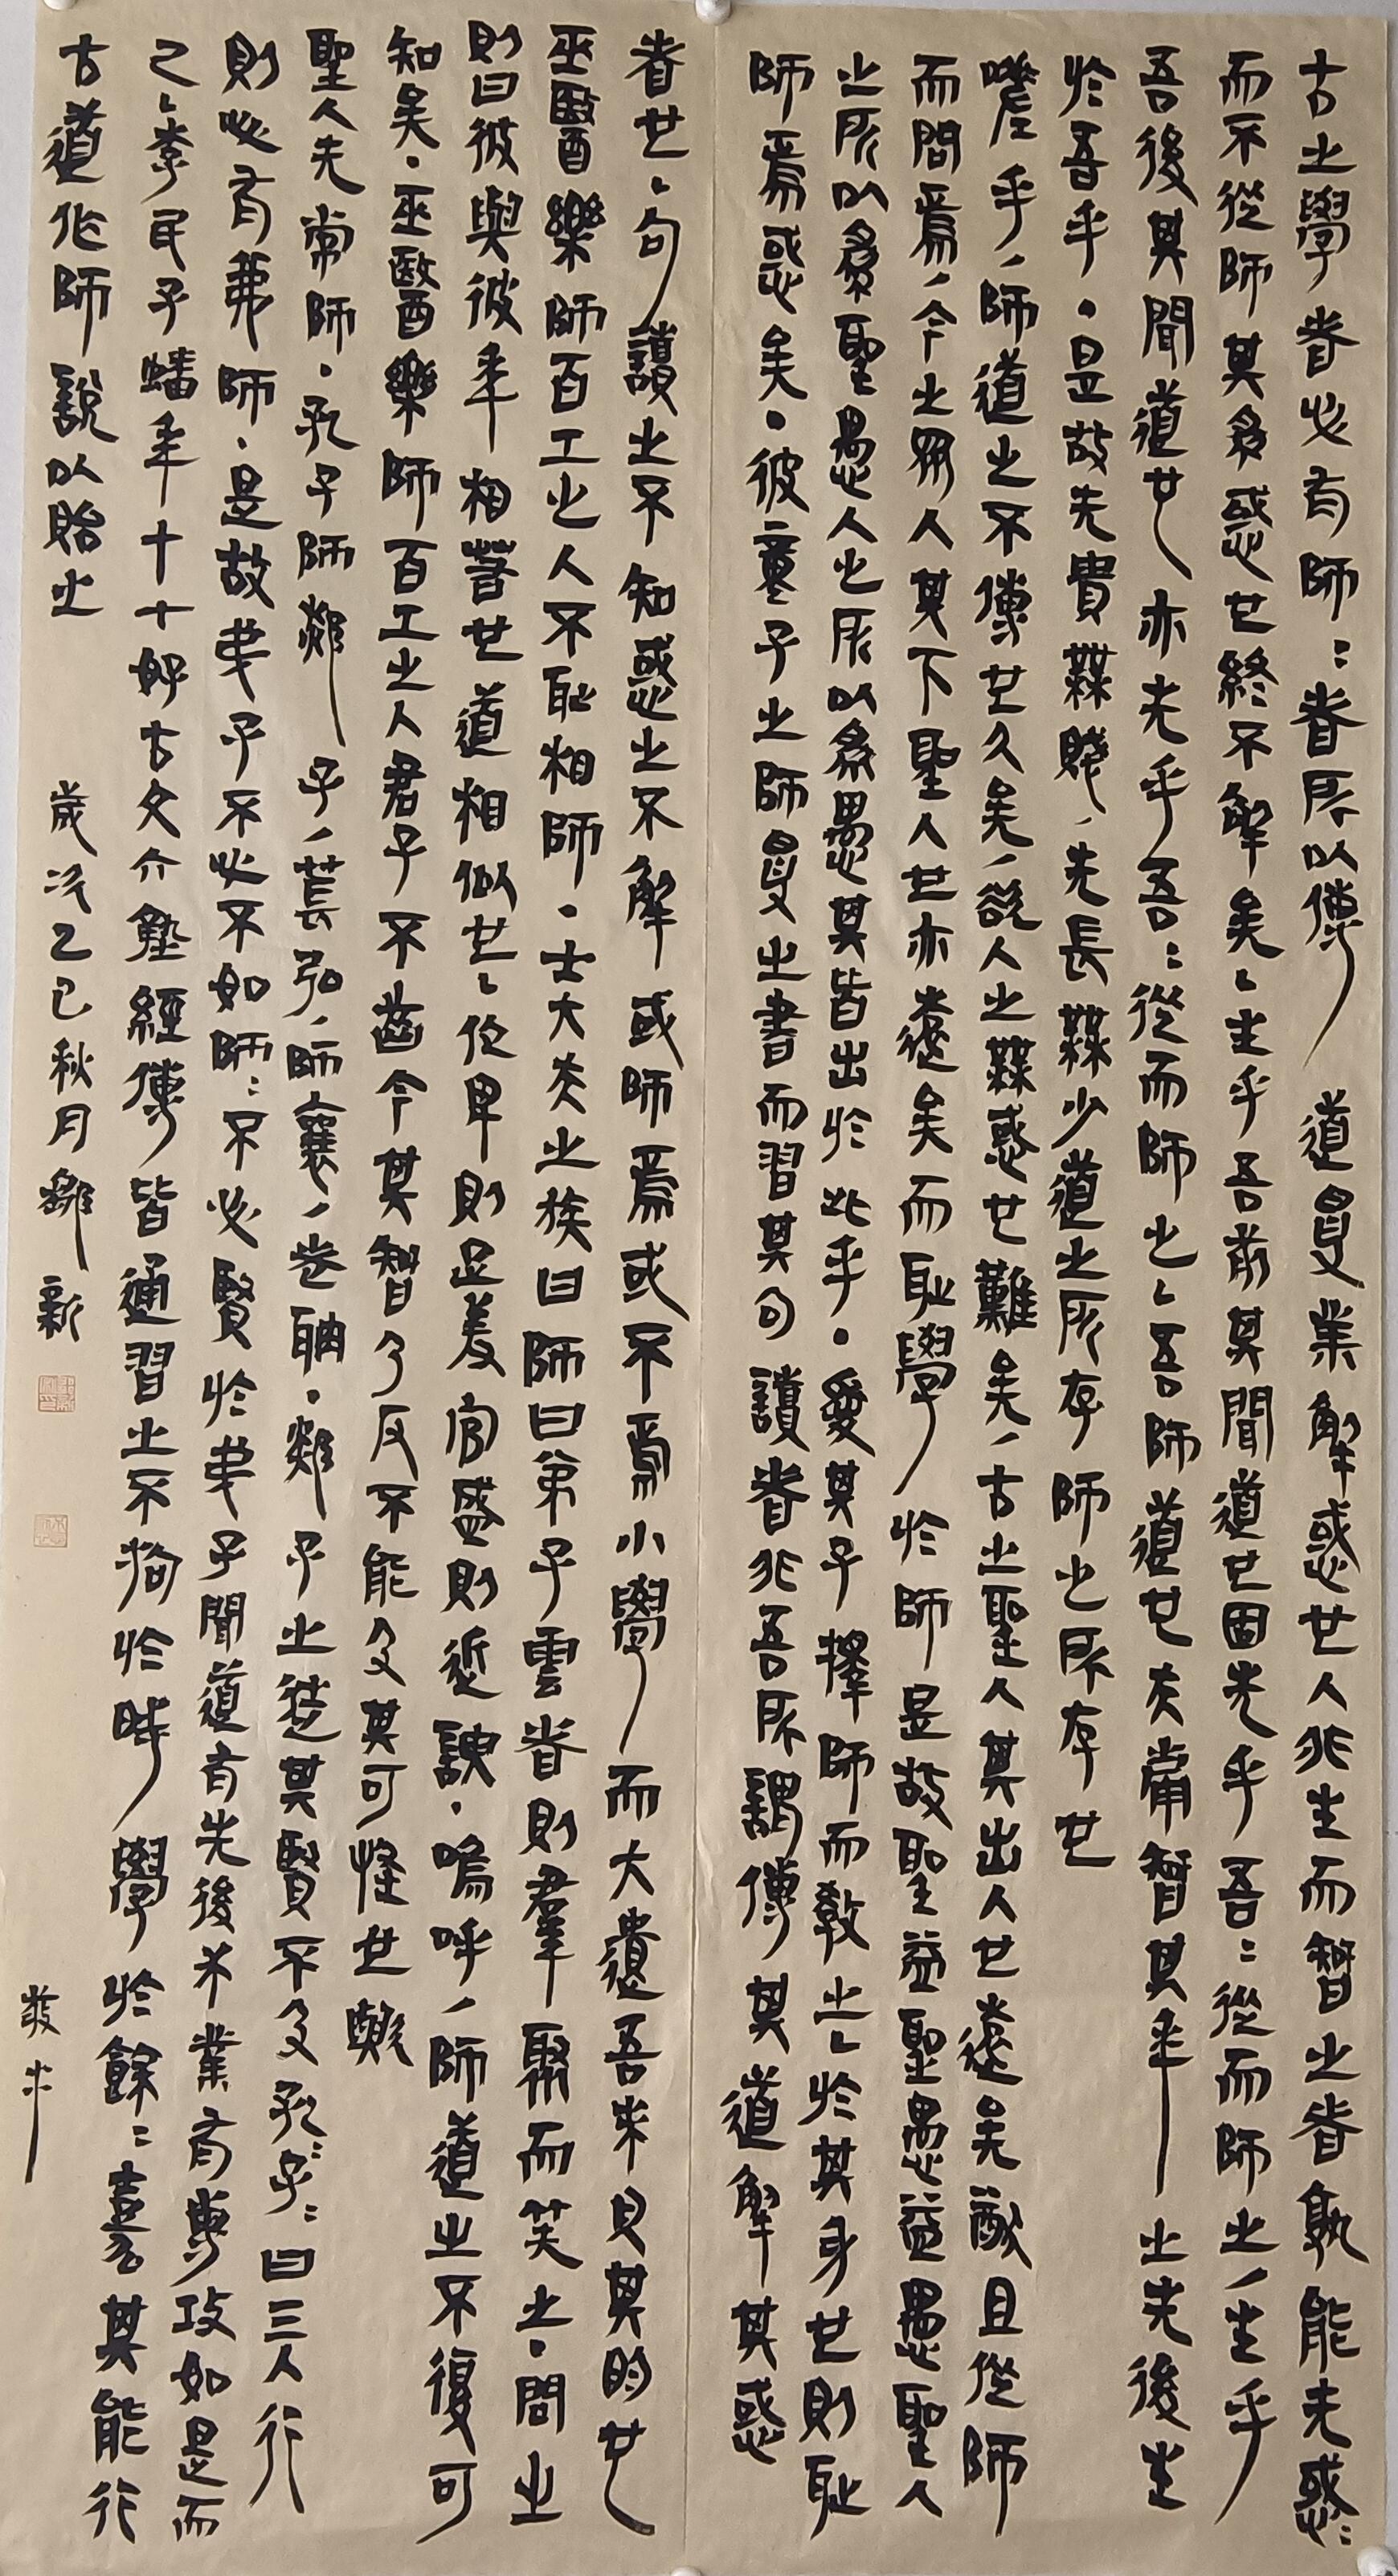 古之學者必有師〻者所以傳道受業解惑也人非生而智之者孰能无惑〻
而不從師其爲惑也終不解矣〻生乎吾前其聞道也固先乎吾〻從而師之生乎
吾後其聞道也亦先乎吾〻從而師之〻吾師道也夫庸智其年之先後生
於吾乎是故无貴無賤无長無少道之所存師之所存也
嗟乎師道之不傳也久矣欲人之無惑也難矣古之聖人其出人也遠矣猶且從師
而問焉今之眾人其下聖人也亦遠矣而恥學於師是故聖益聖愚益愚聖人
之所以爲聖愚人之所以爲愚其皆出於此乎愛其子擇師而教之〻於其身也則恥
師焉惑矣彼童子之師受之書而習其句讀者非吾所謂傳其道解其惑
者也〻句讀之不知惑之不解或師焉或不焉小學而大遺吾未見其明也
巫醫樂師百工之人不恥相師士大夫之族曰師曰弟子雲者則羣聚而笑之問之
則曰彼與彼年相若也道相似也〻位卑則足羞官盛則近諛嗚呼師道之不復可
知矣巫醫樂師百工之人君子不齒今其智乃反不能及其可怪也歟
聖人无常師孔子師郯子萇弘師襄老聃郯子之徒其賢不及孔〻子〻曰三人行
則必有我師是故弟子不必不如師〻不必賢於弟子聞道有先後术業有專攻如是而
已〻李氏子蟠年十七好古文六藝經傳皆通習之不拘於時學於餘〻嘉其能行
古道作師說以貽之 歲次乙巳秋月 新